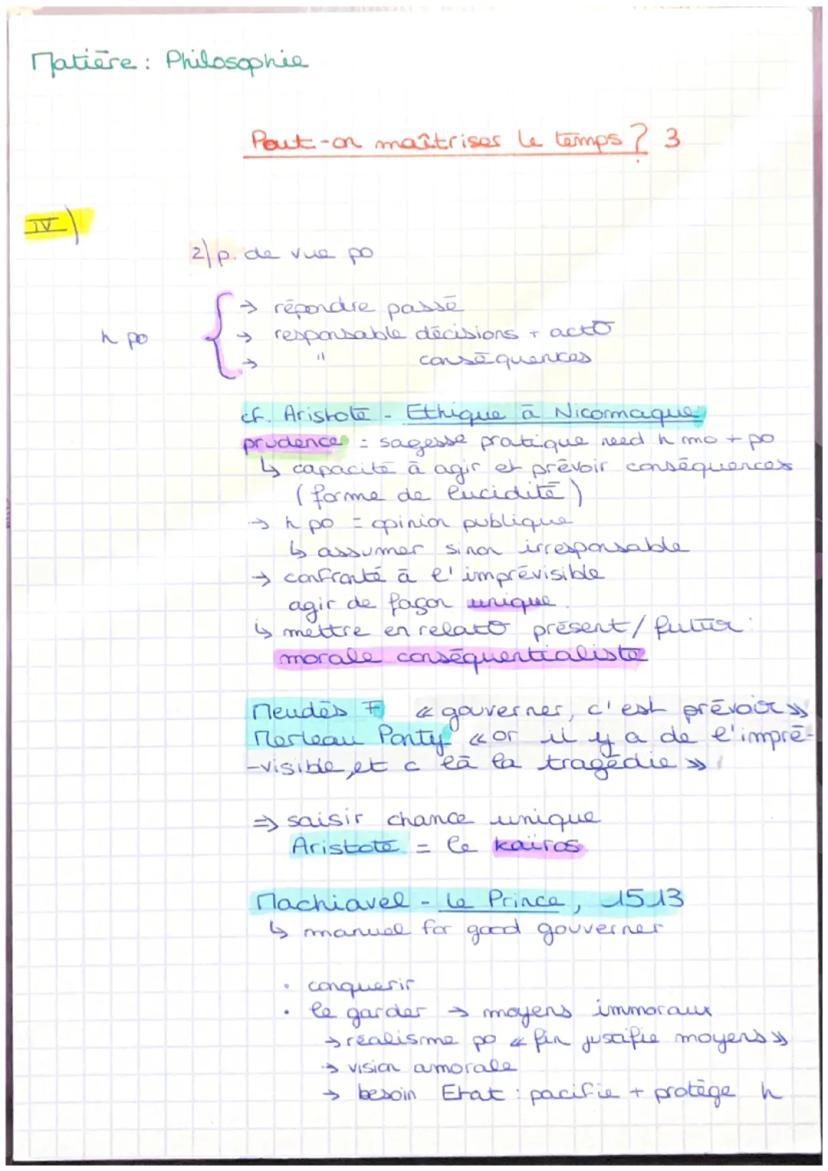 Matière : Philosophie
Peut-on maîtriser le temps ? 3
IV)
2) p. de vue po
→ répondre passé
h po { → responsable décisions + acto
→ " conséquences
cf. Aristote - Ethique à Nicormaque
prudence = sagesse pratique need h mo + po
↳ capacité à agir et prévoir conséquences
(forme de lucidité)
→ h po = opinion publique
↳ assumer sinon irresponsable
→ confronté à l'imprévisible
agir de façon unique.
↳ mettre en relato présent / futur :
morale conséquentialiste
Mendès F « gouverner, c'est prévoir »
Merleau Ponty « or il y a de l'impré-
-visible, et c là la tragédie »
⇒ saisir chance unique
Aristote = le kaïros
Machiavel - Le Prince, 1513
↳ manuel for good gouverner
• conquerir
• le garder → moyens immoraux
→ réalisme po « fin justifie moyens »
→ vision amorale
→ besoin Etat : pacifie + protège h